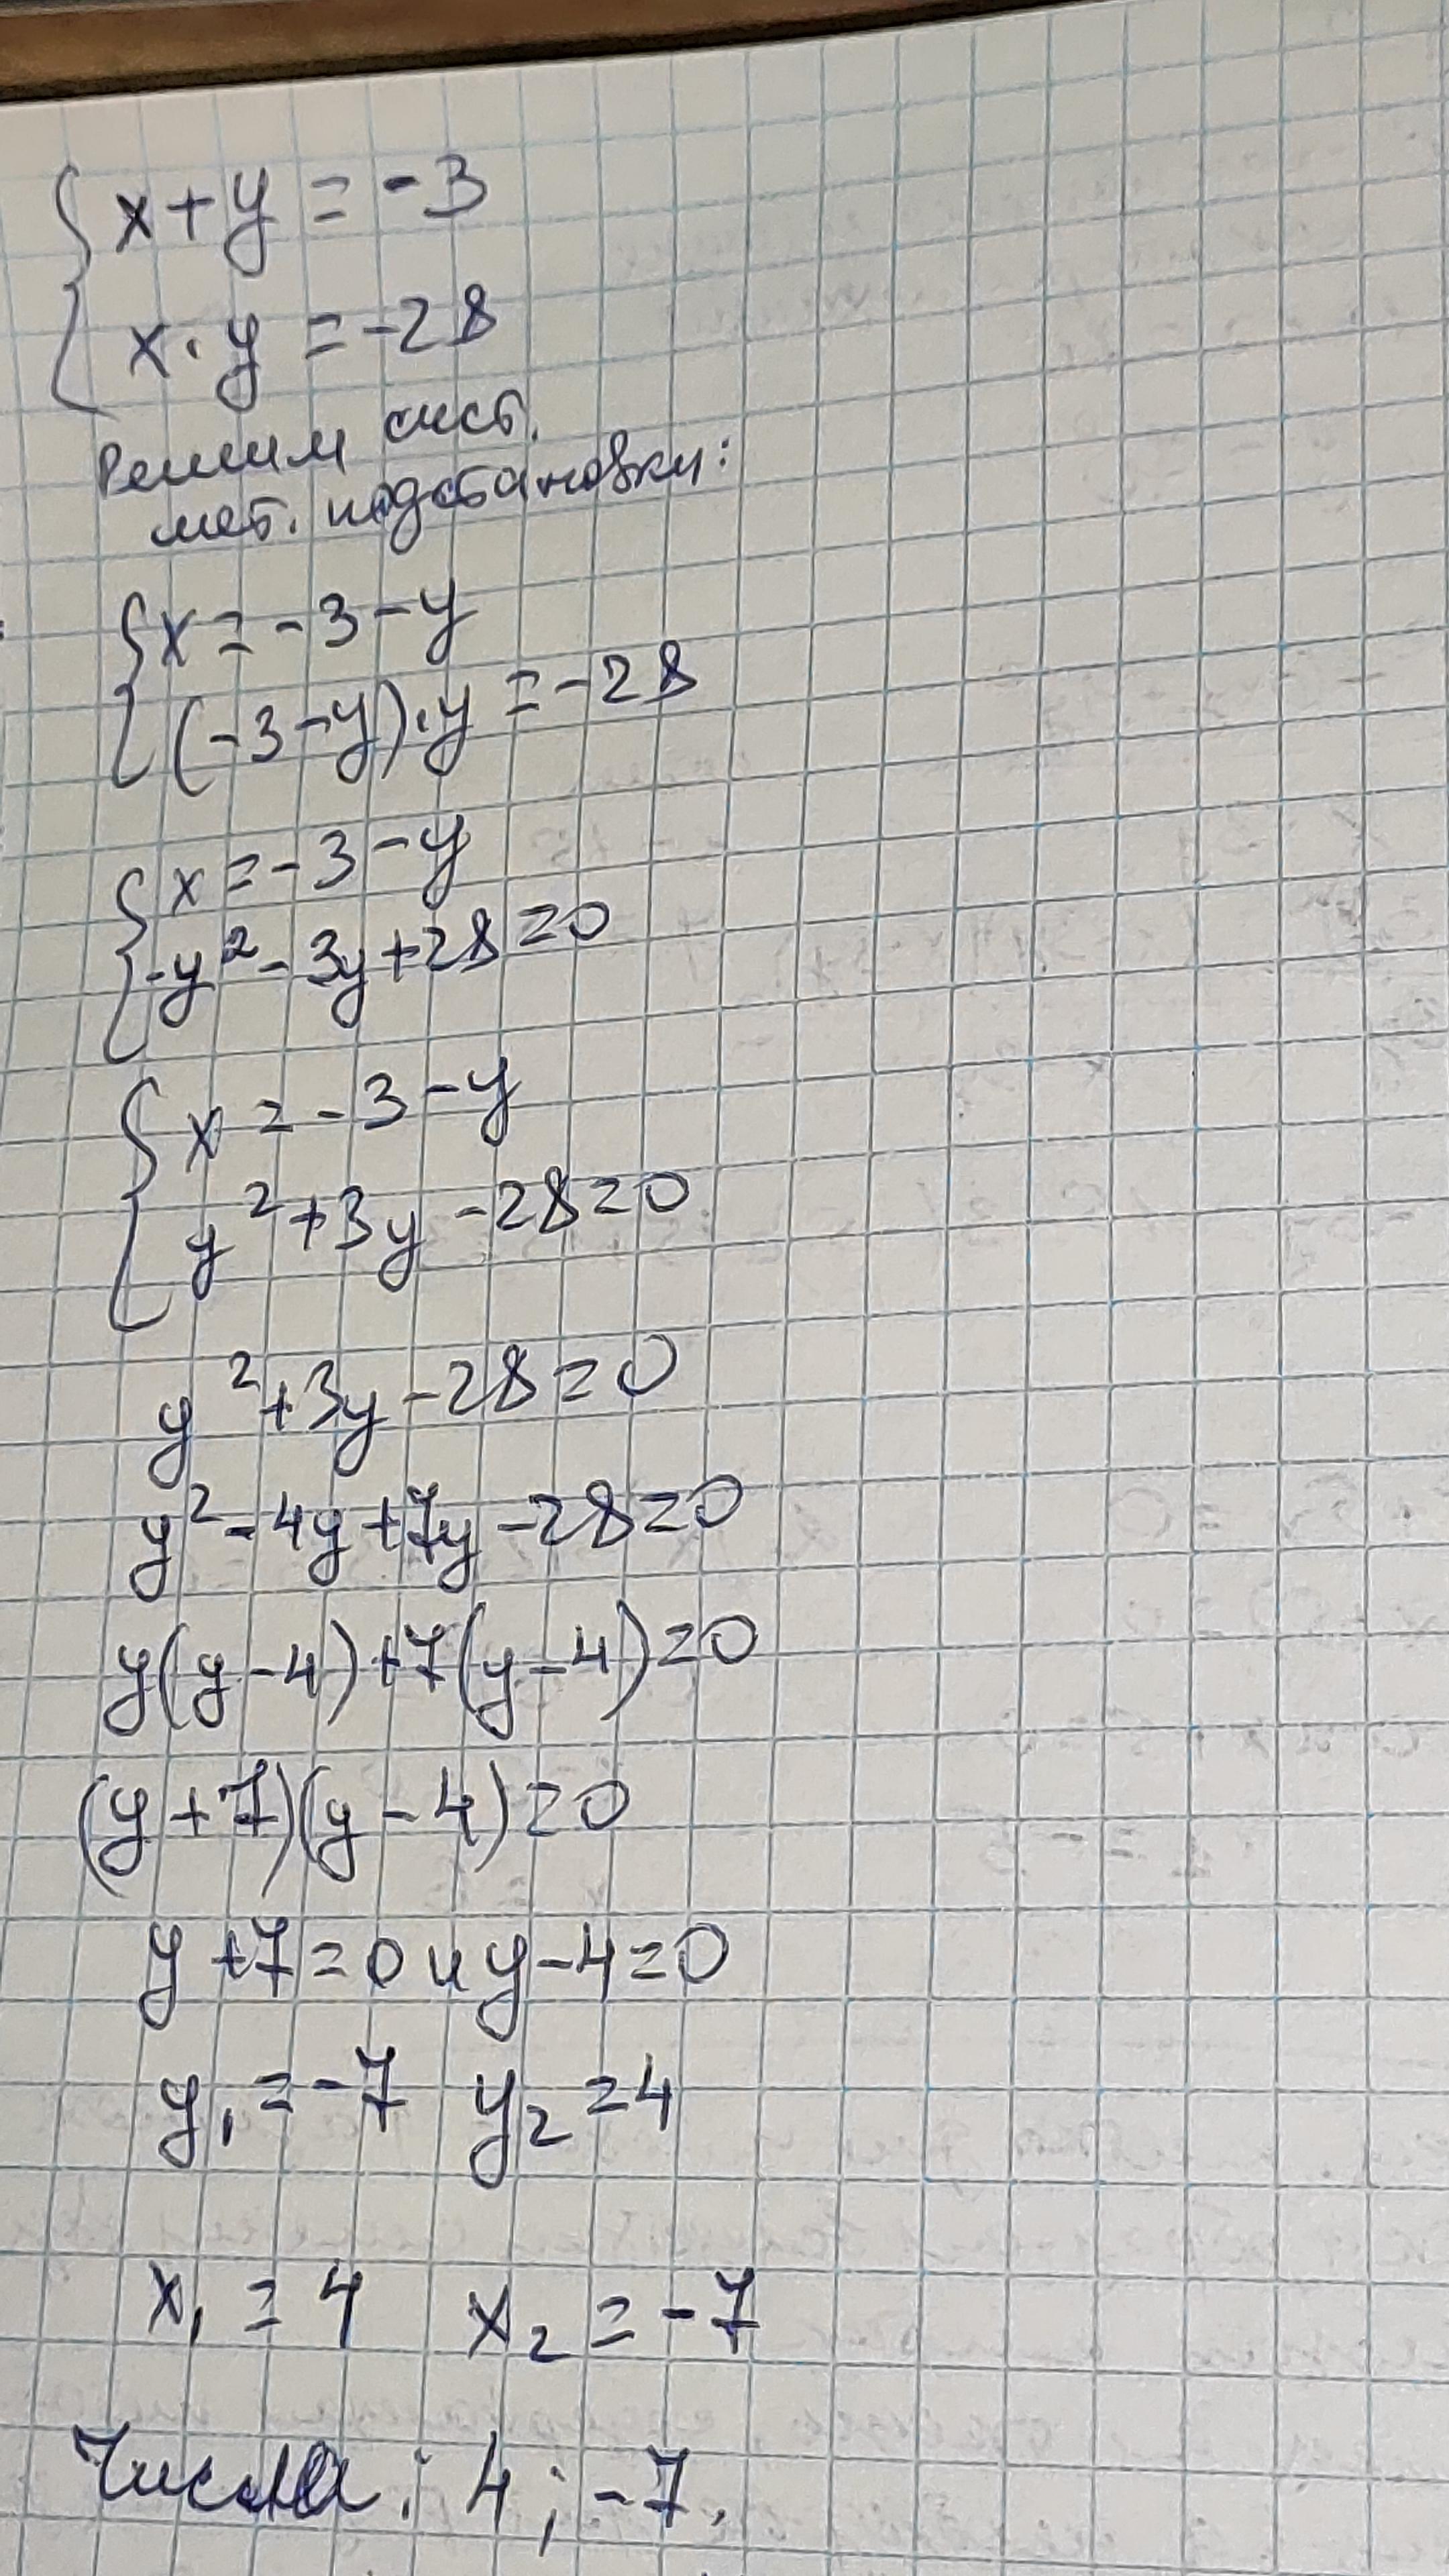 x+y=-3
x·y=-28
Решим сист.
мет. подстановки:
x=-3-y
(-3-y)·y=-28
x=-3-y
-y²-3y+28=0
x=-3-y
y²+3y-28=0
y²+3y-28=0
y²-4y+7y-28=0
y(y-4)+7(y-4)=0
(y+7)(y-4)=0
y+7=0 и y-4=0
y₁=-7 y₂=4
x₁=4 x₂=-7
Числа: 4; -7.